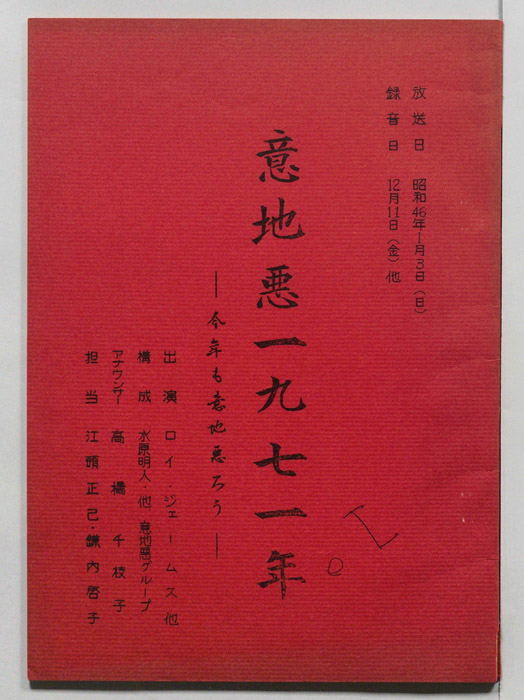 放送日 昭和46年1月3日(日)
録音日 12月11日(金)他
意地悪一九七一年
―今年も意地悪ろう―
出演 ロイ・ジェームス他
構成 水原明人・他、意地悪グループ
アナウンサー 高橋千枝子
担当 江頭正己・鎌内啓子